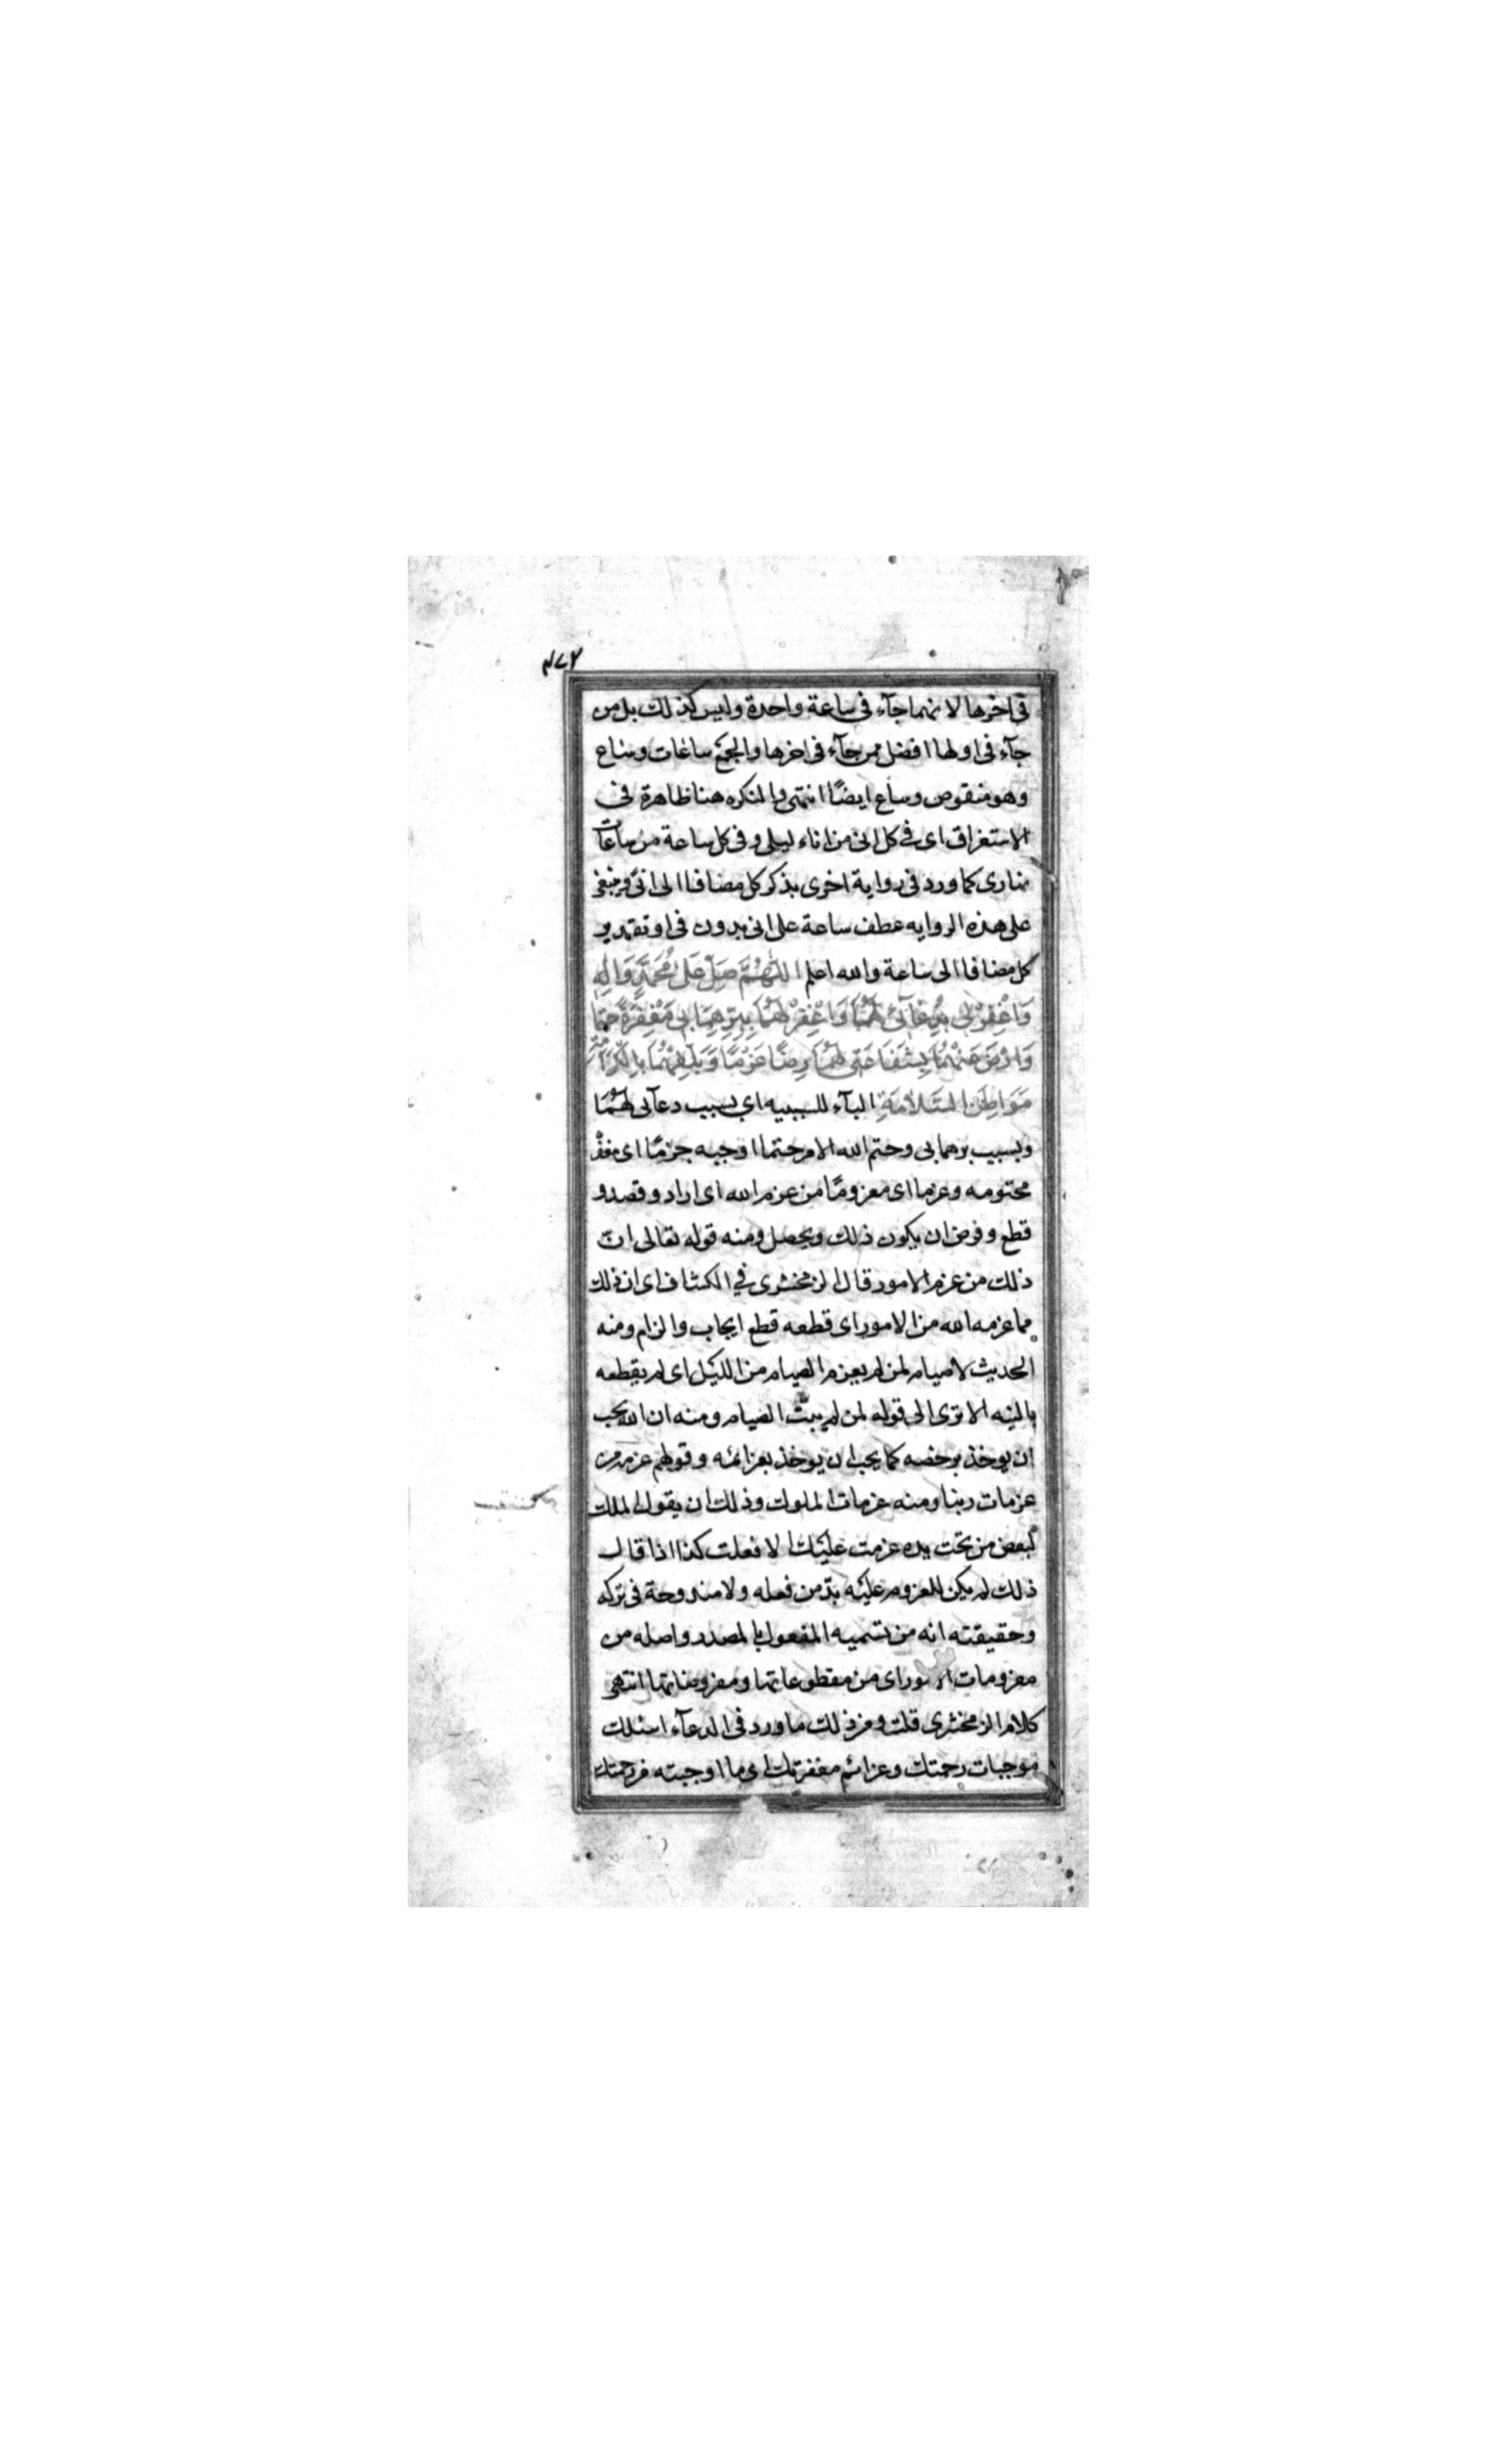 ٤٧٢
فى اخرها لانهما جآء فى ساعة واحدة وليس كذلك بل من
جآء فى اولها افضل ممن جآء فى اخرها والجمع ساعات وساع
وهو منقوص وساع ايضًا انتهى والنكره هنا ظاهرة فى
الاستغراق اى فى كل انى من اناء ليلى وفى كل ساعة من ساعات
نهارى كما ورد فى رواية اخرى بذكر كل مضافا الى انى وينبغى
على هذه الروايه عطف ساعة على انى بدون فى او تقدير
كل مضافا الى ساعة والله اعلم اللَّهُمَّ صَلِّ عَلى مُحَمَّدٍ وَالِهِ
وَاغْفِرْ لى بِدُعَآئى لَهُمَا وَاغْفِرْ لَهُمَا بِبِرِّهِمَا بى مَغْفِرَةً حَتْمًا
وَارْضَ عَنْهُمَا بِشَفَاعَتى لَهُمَا رِضًا عَزْمًا وَبَلِّغْهُمَا بِالكَرَامَةِ
مَوَاطِنَ السَّلامَةِ البآء للسببيه اى بسبب دعآئى لَهُمَا
وبسبب برهما بى وحتم الله الامر حتما اوجبه جزمًا اى مغفرة
محتومه وعزما اى معزومًا من عزم الله اى اراد وقصد و
قطع وفرض ان يكون ذلك ويحصل ومنه قوله تعالى انّ
ذلك من عزم الامور قال الزمخشرى فى الكشاف اى ان ذلك
مما عزمه الله من الامور اى قطعه قطع ايجاب والزام ومنه
الحديث لا صيام لمن لم يعزم الصيام من الليل اى لم يقطعه
بالنيه الا ترى الى قوله لمن لم يبيّت الصيام ومنه ان الله يحب
ان يوخذ برخصه كما يحب ان يوخذ بعزائمه وقولهم عزمه من
عزمات ربنا ومنه عزمات الملوك وذلك ان يقول الملك
لبعض من تحت يده عزمت عليك الا فعلت كذا اذا قال
ذلك لم يكن للمعزوم عليه بدّ من فعله ولا مندوحة فى تركه
وحقيقته انه من تسميه المفعول بالمصدر واصله من
معزومات الامور اى من مقطوعاتها ومفروضاتها انتهى
كلام الزمخشرى قلت ومن ذلك ما ورد فى الدعآء اسئلك
موجبات رحمتك وعزائم مغفرتك اى ما اوجبته من رحمتك